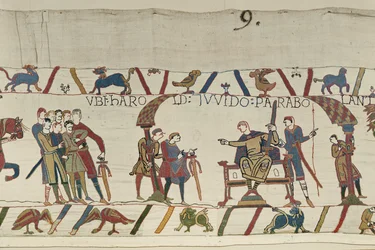 9.
VBI: hARO LD: ⁊ VVIDO: PARABO LANT